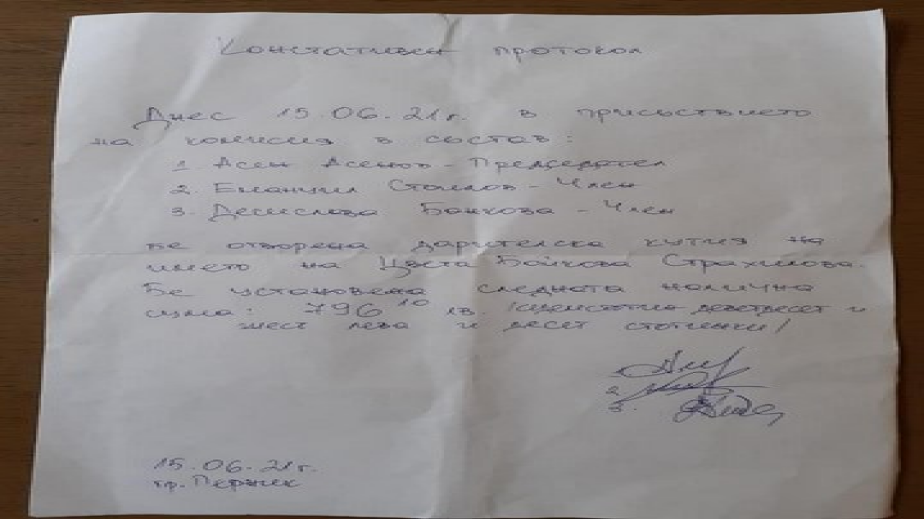 Констативен протокол
Днес 15.06.21г. в присъствието
на комисия в състав:
1. Асен Асенов - Председател
2. Емануил Стоилов - Член
3. Десислава Банкова - Член
бе отворена дарителска кутия на
името на Цвета Бойкова Страхилова.
Бе установена следната налична
сума: 796 10 лв. /седемстотин деветдесет и
шест лева и десет стотинки/
1.
2.
3.
15.06.21г.
гр. Перник